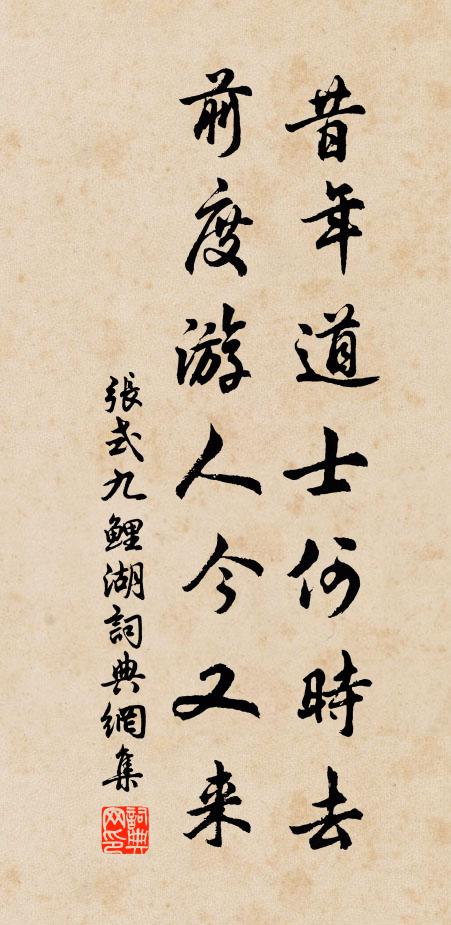 昔年道士何時去
前度游人今又来
張式九鯉湖詞典網集
詞典網印